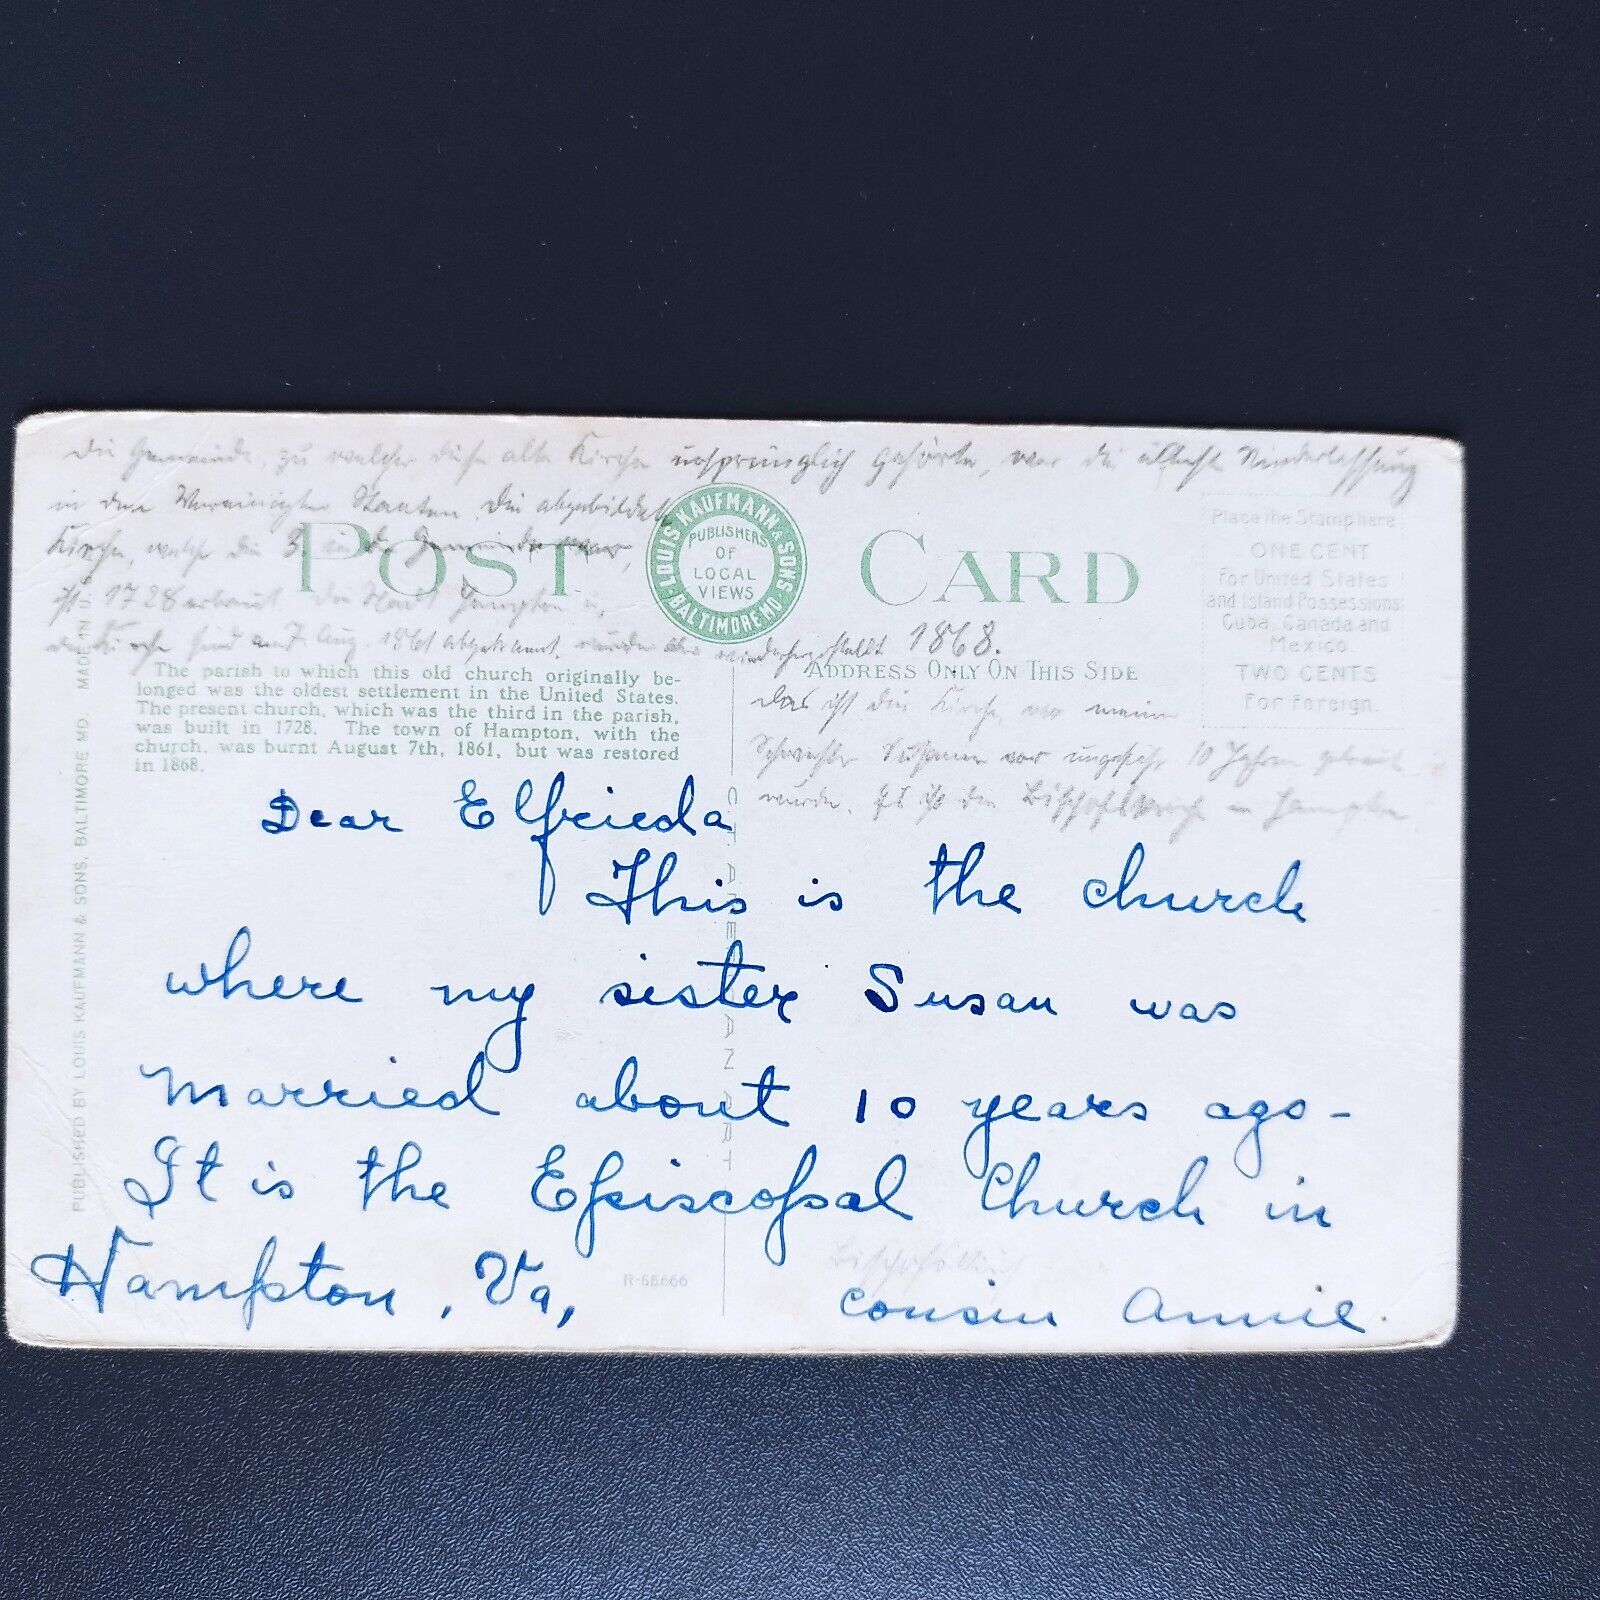 Die Gemeinde, zu welcher diese alte Kirche ursprünglich gehörte, war die älteste Niederlassung
in den Vereinigten Staaten. Die abgebildete
Kirche, welche die 3. in der Gemeinde war,
ist 1728 erbaut. Die Stadt Hampton u.
die Kirche sind am 7. Aug. 1861 abgebrannt, wurden aber wiederhergestellt 1868.
POST CARD
LOUIS KAUFMANN & SONS
PUBLISHERS
OF
LOCAL
VIEWS
BALTIMORE MD.
Place the Stamp here
ONE CENT
For United States
and Island Possessions
Cuba, Canada and
Mexico.
TWO CENTS
For Foreign.
ADDRESS ONLY ON THIS SIDE
The parish to which this old church originally be-
longed was the oldest settlement in the United States.
The present church, which was the third in the parish,
was built in 1728. The town of Hampton, with the
church, was burnt August 7th, 1861, but was restored
in 1868.
Das ist die Kirche, wo meine
Schwester Susanne vor ungefähr 10 Jahren getraut
wurde. Es ist die Bischofskirche in Hampton.
Dear Elfrieda
This is the church
where my sister Susan was
married about 10 years ago-
It is the Episcopal Church in
Hampton, Va,
cousin Annie.
R-66666
PUBLISHED BY LOUIS KAUFMANN & SONS, BALTIMORE MD. MADE IN U.S.A.
C.T. AMERICAN ART